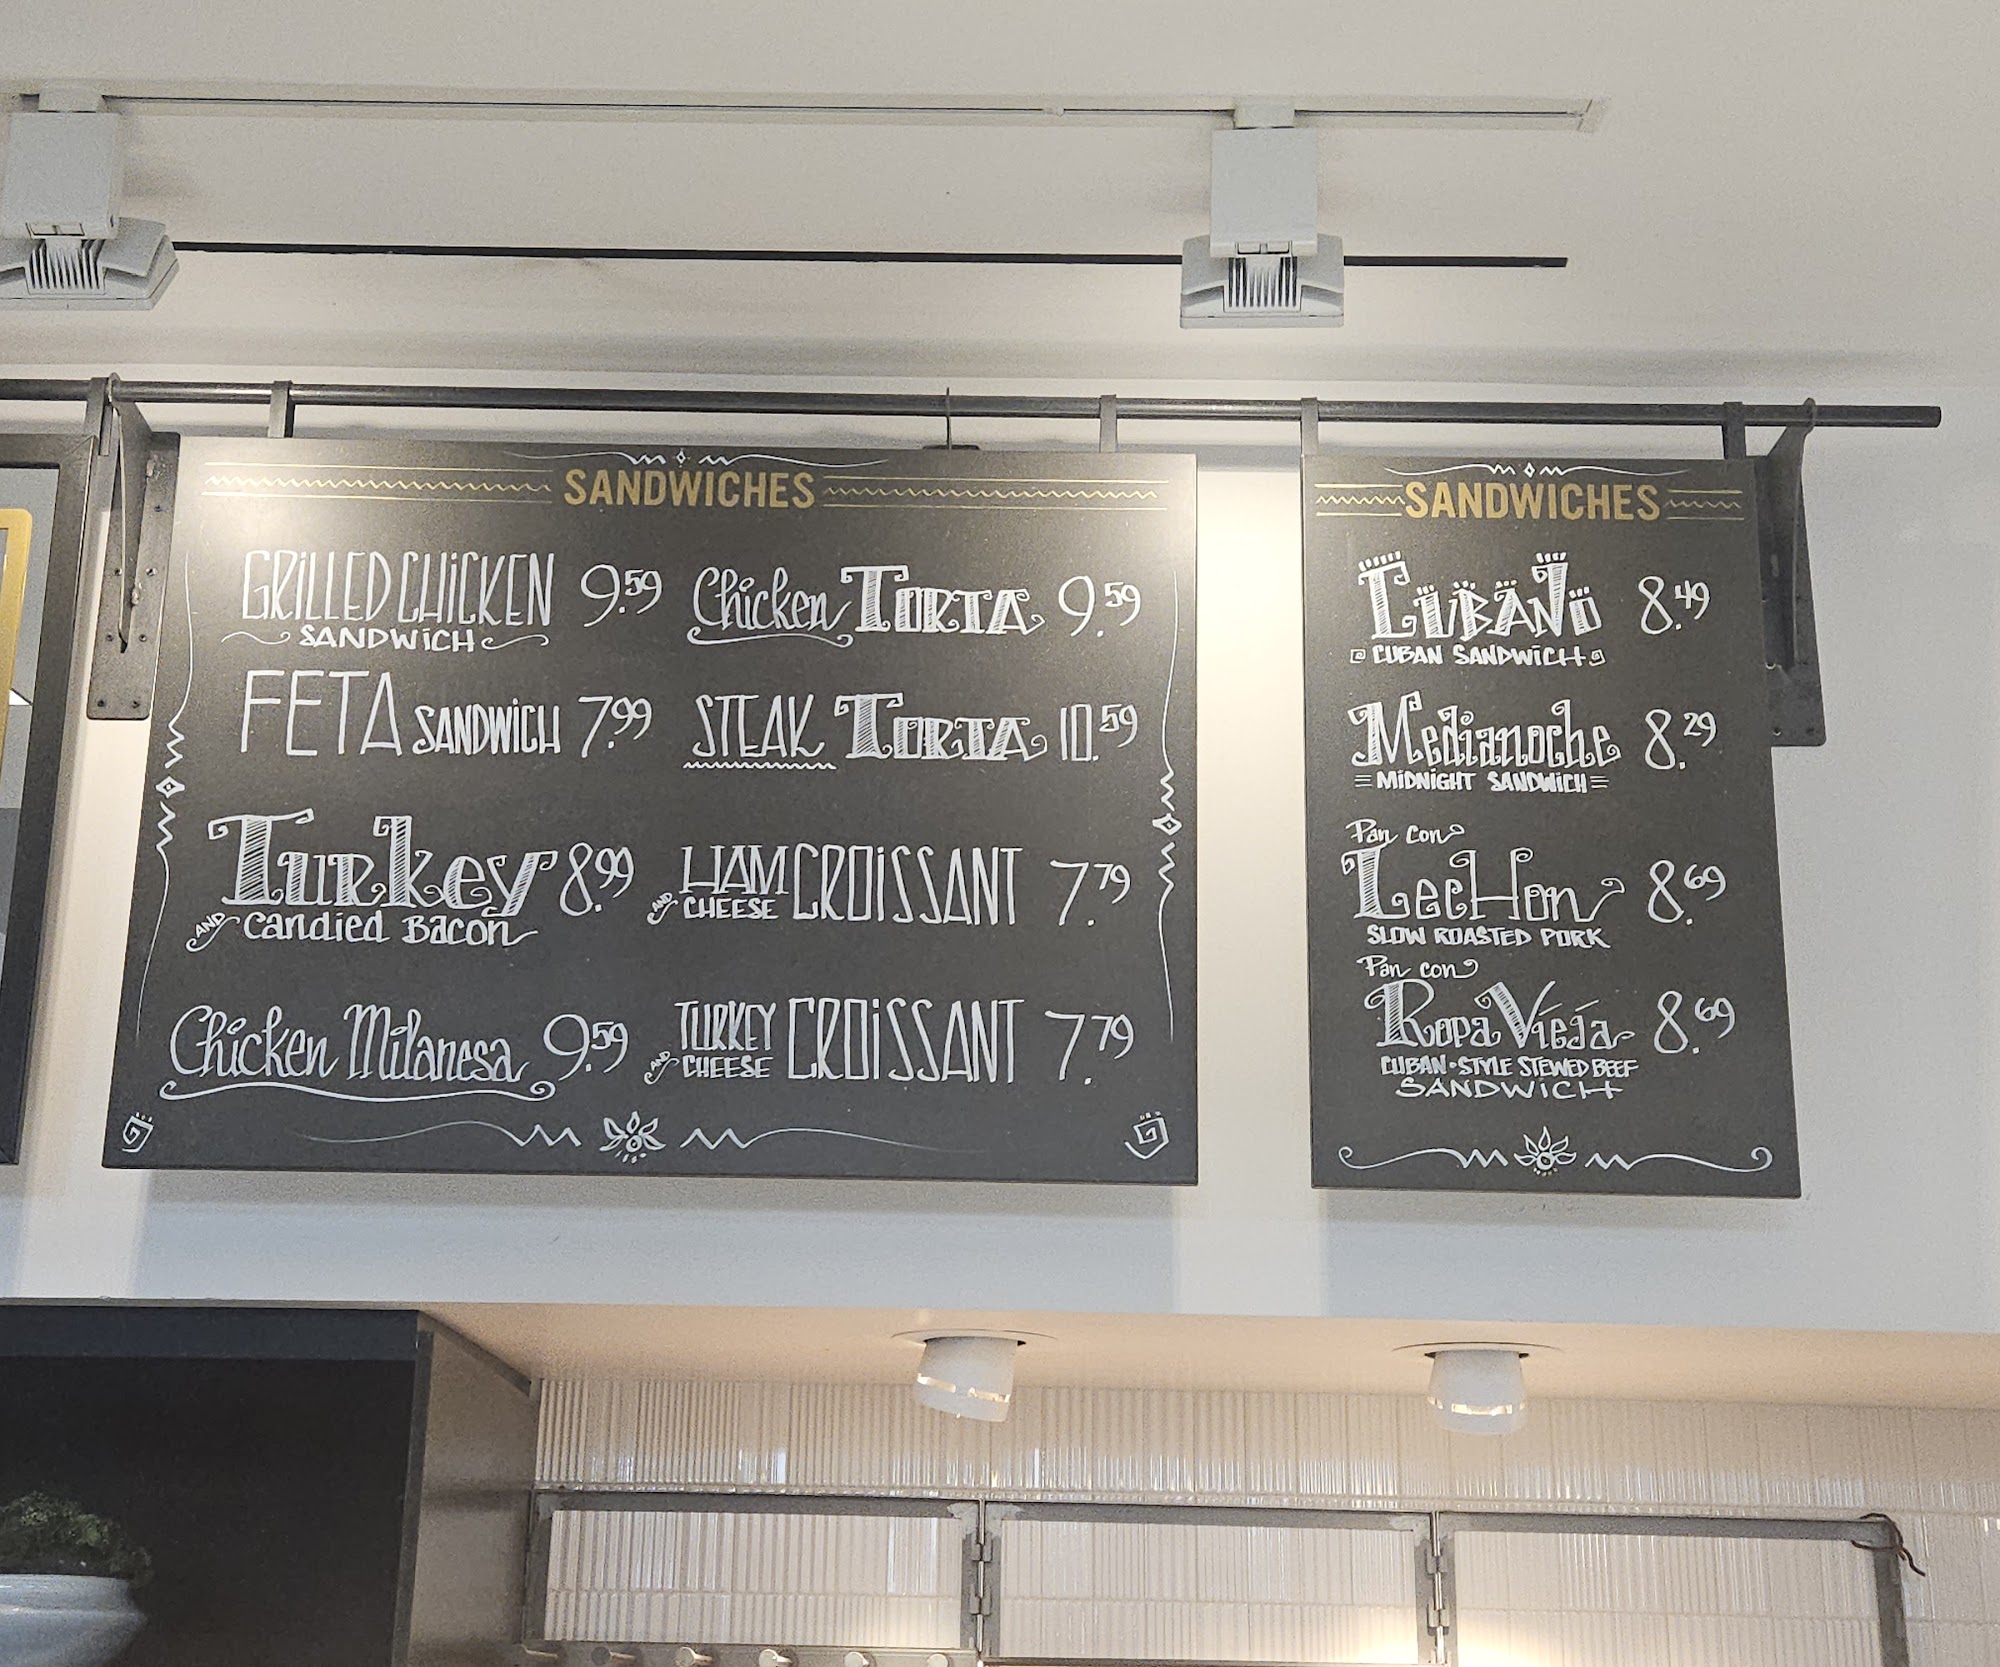 SANDWICHES
GRILLED CHICKEN 9.59
SANDWICH
FETA SANDWICH 7.99
Turkey 8.99
AND Candied Bacon
Chicken Milanesa 9.59
Chicken TORTA 9.59
STEAK TORTA 10.59
HAM AND CHEESE CROISSANT 7.79
TURKEY AND CHEESE CROISSANT 7.79
SANDWICHES
CUBANO 8.49
CUBAN SANDWICH
Medianoche 8.29
MIDNIGHT SANDWICH
Pan con
LecHon 8.69
SLOW ROASTED PORK
Pan con
Ropa Vieja 8.69
CUBAN-STYLE STEWED BEEF
SANDWICH